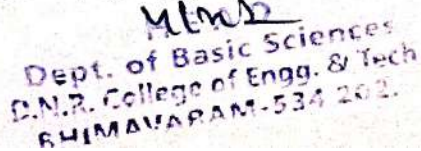 Dept. of Basic Sciences
D.N.R. College of Engg. & Tech
BHIMAVARAM-534 202.